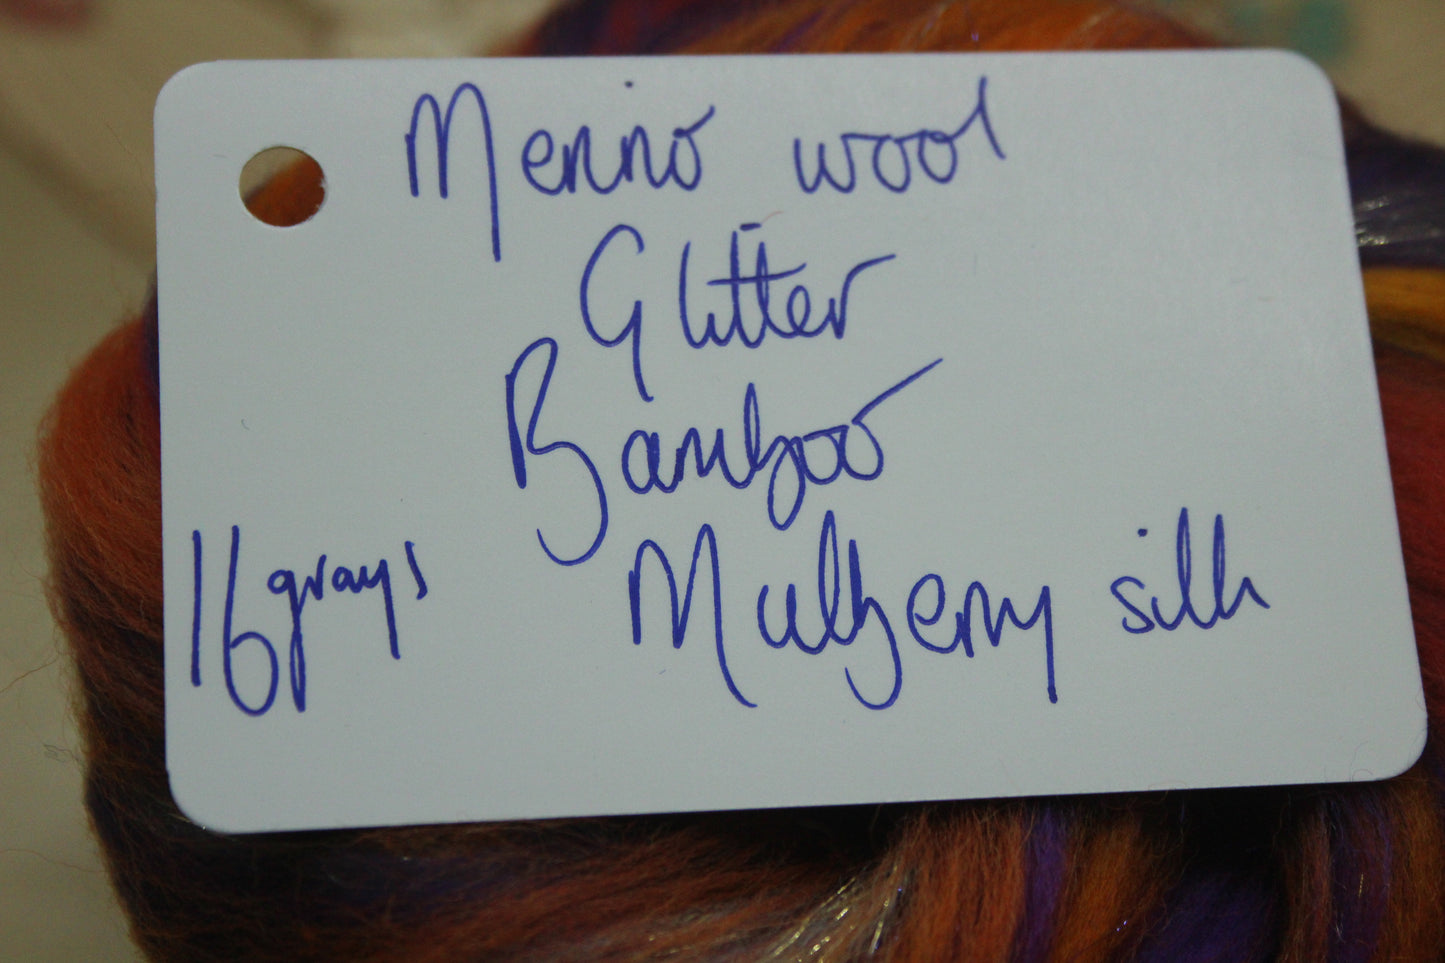 Merino wool
Glitter
Bamboo
16grays
Mulberry silk